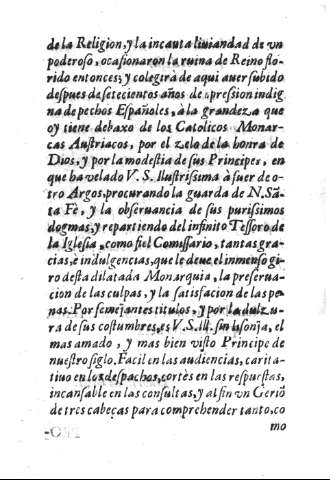 de la Religion, y la incauta liuiandad de vn
poderoso, ocasionaron la ruina de Reino flo-
rido entonces; y colegirà de aqui auer subido
despues de setecientos años de opression indig
na de pechos Españoles, à la grandeza que
oy tiene debaxo de los Catolicos Monar-
cas Austriacos, por el zelo de la honra de
Dios, y por la modestia de sus Principes, en
que ha velado V. S. Ilustrissima à fuer de o-
tro Argos, procurando la guarda de N. Sã-
ta Fè, y la obseruancia de sus purissimos
dogmas, y repartiendo del infinito Tessoro de
la Iglesia, como fiel Comissario, tantas gra-
cias, e indulgencias, que le deue el inmenso gi-
ro desta dilatada Monarquia, la preserua-
cion de las culpas, y la satisfacion de las pe-
nas. Por semejantes titulos, y por la dulzu-
ra de sus costumbres, es V. S. Ill. sin lisonja, el
mas amado, y mas bien visto Principe de
nuestro siglo. Facil en las audiencias, carita-
tiuo en los despachos, cortès en las respuestas,
incansable en las consultas, y al fin vn Geriõ
de tres cabeças para comprehender tanto, co
mo